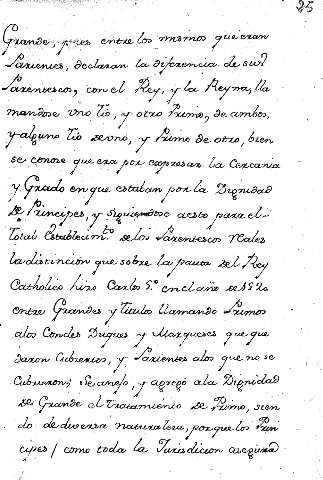 25
Grande, pues entre los mismos que eran
Parientes, declaran la diferencia de sus
Parentescos, con el Rey, y la Reyna, lla
mandose uno tio, y otro Primo, de ambos,
y alguno tio de uno, y Primo de otro, bien
se conoze que era por expresar la Cercania
y Grado en que estaban por la Dignidad
de Principes, y siguiendose a esto para el
total Establecim.to de los Parentescos Reales
la distincion que sobre la pauta del Rey
Catholico hizo Carlos 5.º en el año de 1520
entre Grandes y Titulos llamando Primos
a los Condes Duques y Marqueses que que
daron Cubiertos, y Parientes a los que no se
Cubrieron; Se anejo, y agregó a la Dignidad
de Grande el tratamiento de Primo, sien
do de diversa naturaleza, porque los Prin
cipes / como toda la Jurisdicion asegura